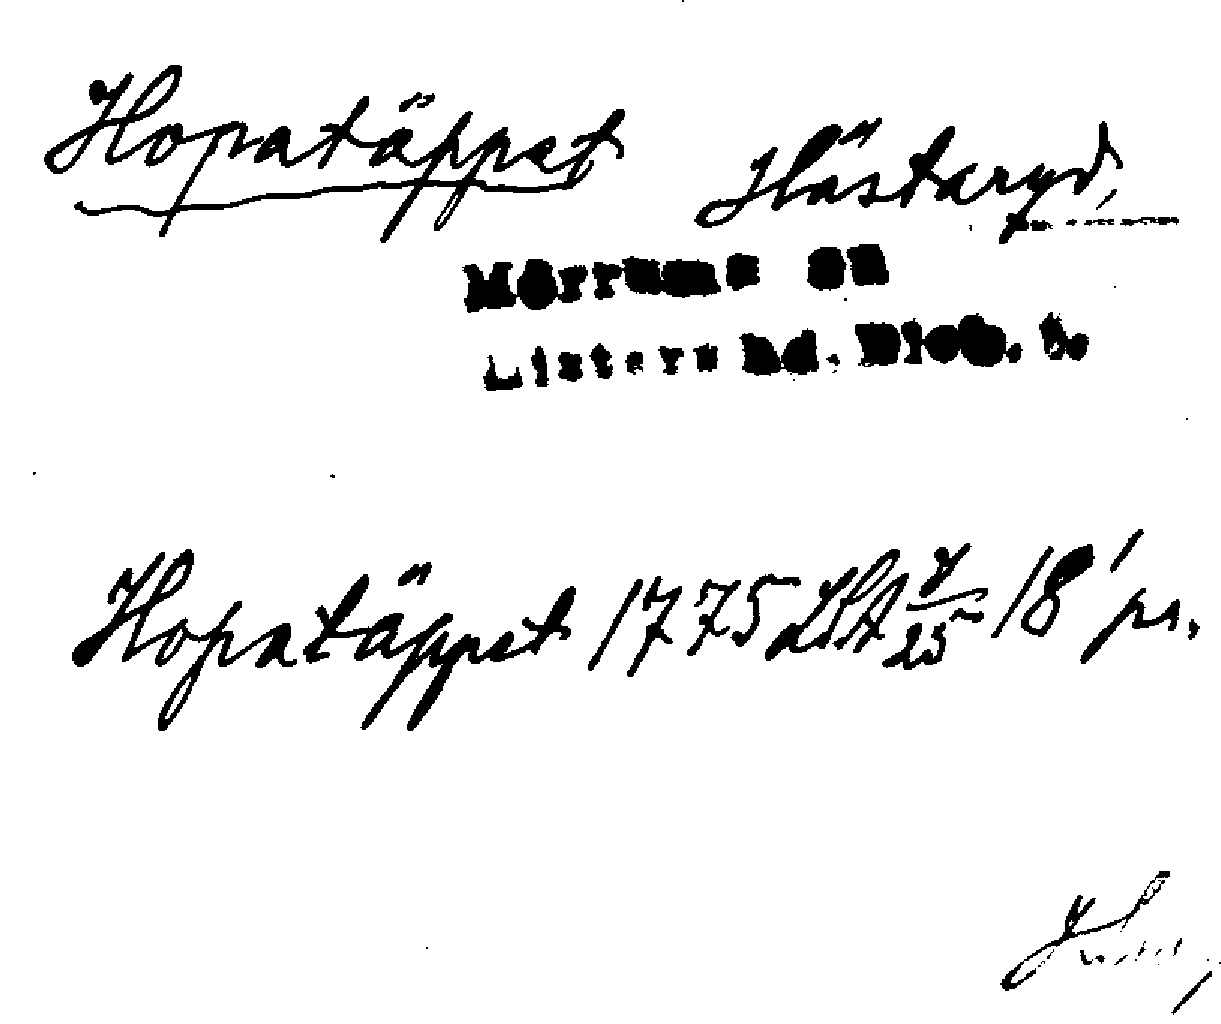 Hopatäppet Hästaryd,
Mörrums sn
Listers hd. Blek. l.
Hopatäppet 1775 LSA 7/25 18' ps.